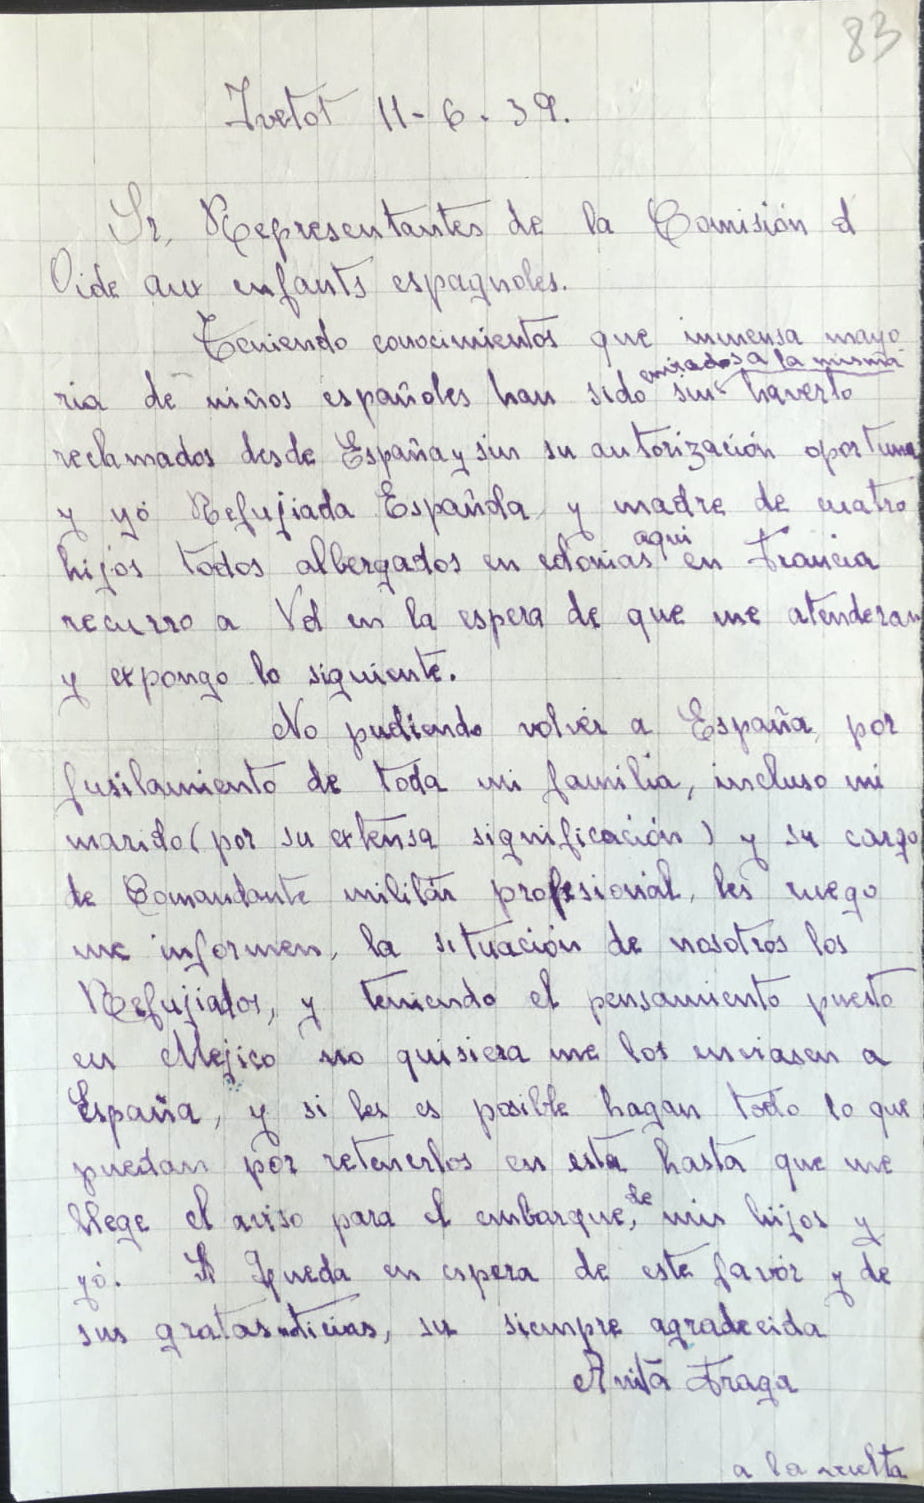 83
Ivetot 11-6.39.
Sr, Representantes de la Comisión d
Oide aux enfants espagnoles.
Teniendo conocimientos que inmensa mayo
enviados a la misma
ria de niños españoles han sido sin haverlo
reclamados desde España y sin su autorización oportuna
y yó Refujiada Española y madre de cuatro
aqui
hijos todos albergados en colonias en Francia
recurro a Vd en la espera de que me atenderan
y expongo lo siguiente.
No pudiendo volver a España, por
fusilamiento de toda mi familia, incluso mi
marido (por su extensa significación) y su cargo
de Comandante militár profesional, les ruego
me informen, la situación de nosotros los
Refujiados, y teniendo el pensamiento puesto
en Mejico no quisiera me los enviasen a
España, y si les es posible hagan todo lo que
puedan por retenerlos en esta hasta que me
llege el aviso para el embarque, de mis hijos y
yó. Queda en espera de este favór y de
sus gratas noticias, su siempre agradecida
Anita Fraga
a la vuelta